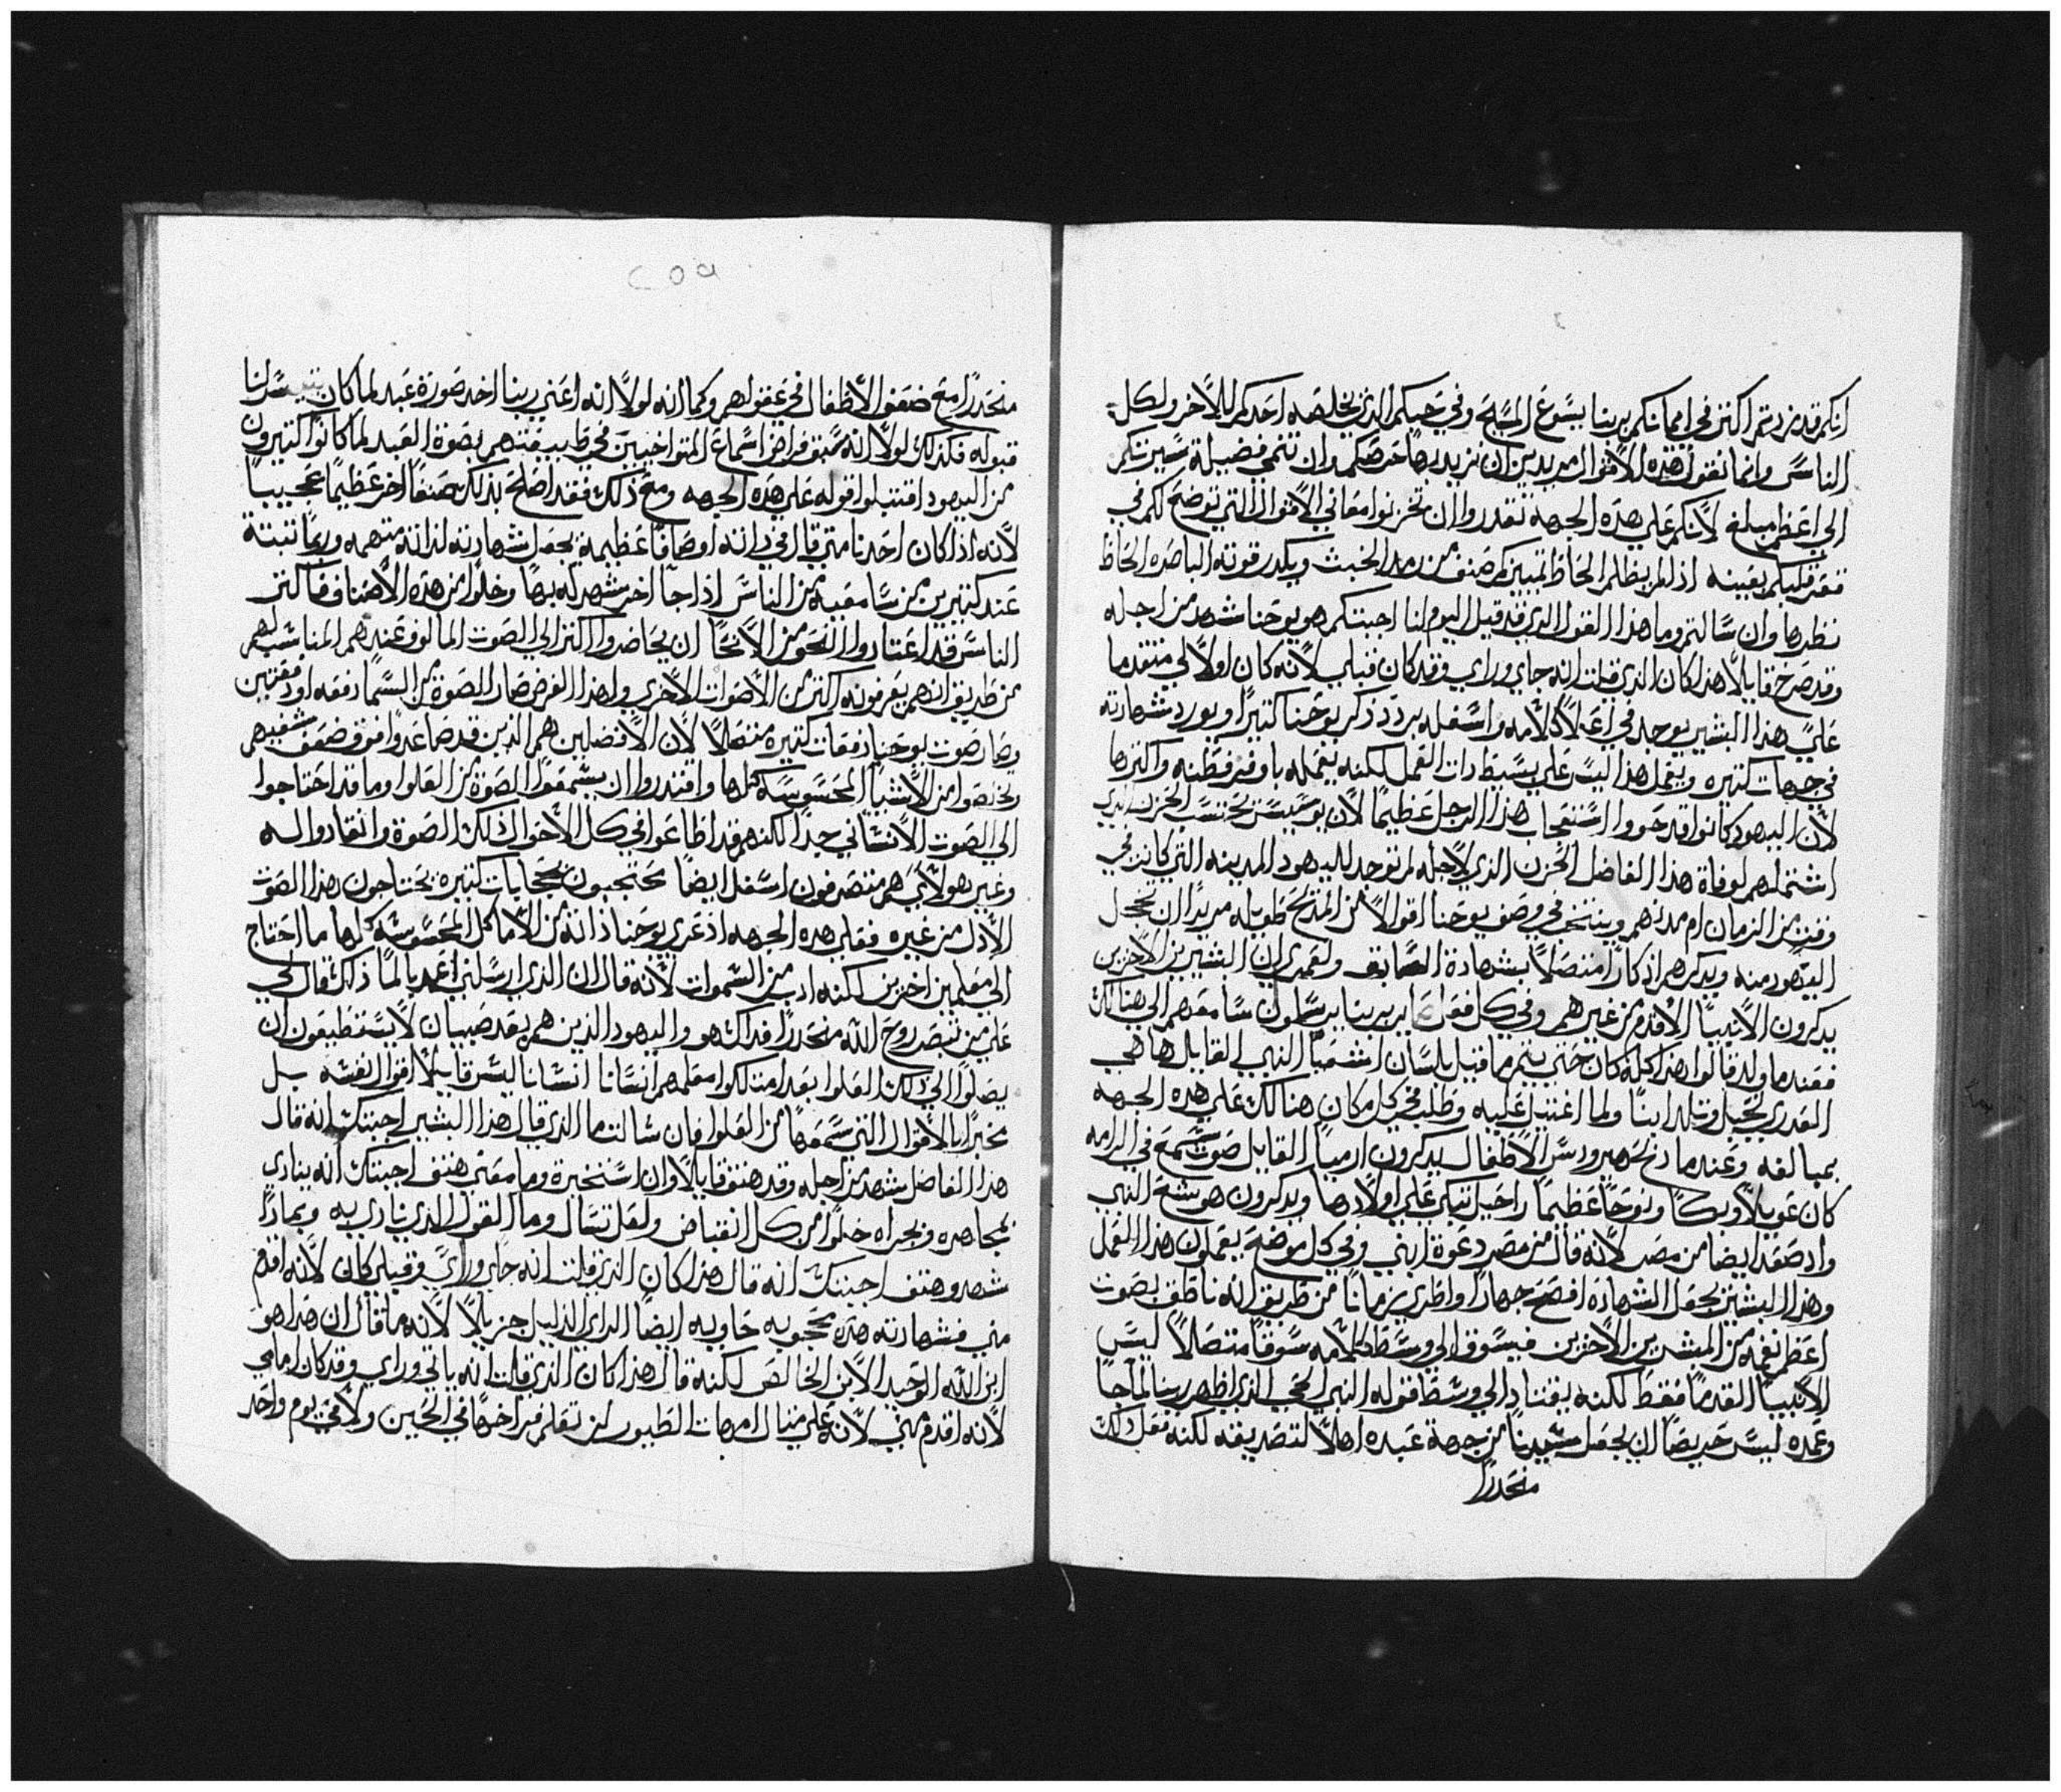 انكم قد زدتم اكتر في امانتكم بربنا يسوع المسيح وفي حبكم الذي يخلصه احدكم للاخر ولكل
الناس وانما نقول هذه الاقوال مريدين ان نزيدها عرضكم وان تنمي فضيلة سيرتكم
الي اعظم مبلغ لانكم علي هذه الجهه تقدروا ان تخزنوا معاني الاقوال التي توضح لكم في
قلبكم بعينه اذ لم يظلم الحاظ تمييزكم صنف من رمد الخبث ويكدر قوته الباصره الحاظ
نظرها وان سالتم وما هذا القول الذي قد قيل اليوم لنا اجبتكم هو يوحنا شهد من اجله
وقد صرخ قايلا هذا كان الذي قلت انه جاي وراي وقد كان قبلي لانه كان اولا لي متقدما
علي هذا البشير يوجد في اعلا كلامه واسفله يردد ذكر يوحنا كتيرا ويورد شهادته
في جهات كتيره ويعمل هذا ليس علي بسيط دات العمل لكنه يعمله باوفر فطنه واكترها
لان اليهود كانوا قد حووا استعجاب هذا الرجل عظيما لان يوسيبس يحتسب الحزن الذي
اشتملهم لوفاة هذا الفاضل الحزن الذي لاجله لم توجد لليهود المدينه التي كانت في
وقت من الزمان ام مدنهم وينتخب في وصف يوحنا اقوالا من المدح طويله مريدا ان يخجل
اليهود منه ويدكرهم اذكارا متصلا بشهادة السابق ولعمري ان البشيرين الاخرين
يدكرون الانبيا الاقدم من غيرهم وفي كل فعل صاير بربنا يرسلون سامعهم الي هنالك
فعندما ولد قالوا هذا كله كان حتي يتم ما قيل بلسان اشعيا النبي القايل ها هي
العدري تحبل وتلد ابنا ولما اغتيل عليه وطلب في كل مكان هنالك علي هذه الجهه
بمبالغه وعندما دبح هيرودس الاطفال يدكرون ارميا القايل صوت سمع في الرامه
كان عويلا وبكا ونوحا عظيما راحيل تبكي علي اولادها ويدكرون هوشع النبي
واد صعد ايضا من مصر لانه قال من مصر دعوة ابني وفي كل موضع يعملون هذا العمل
وهذا البشير يجعل الشهاده افصح جهارا واطري زمانا من طريق انه ناطق بصوت
اعظم نغمه من المبشرين الاخرين فيسوق الي وسط كلامه سوقا متصلا ليس
الانبيا القدما فقط لكنه يقتاد الي وسط قوله النبي الحي الذي اظهر ربنا لما جا
وعمده ليس حريصا ان يجعل سيدنا من جهة عبده اهلا لتصديقه لكنه فعل دلك
منحدرا
٢٥٩
منحدرا مع ضعف الاطفال في عقولهم وكما انه لولا انه اعني ربنا اخد صورة عبد لما كان تيسر لنا
قبوله فكدلك لولا انه سبق فراض اسماع المتواخيين في طبيعتهم بصوة العبد لما كانوا كتيرون
من اليهود اقتبلوا قوله علي هذه الجهه ومع ذلك فقد اصلح بذلك صنفا اخر عظيما عجيبا
لانه اذا كان احدنا متي قال في داته اوصافا عظيمة يجعل شهادته لذاته متهمه وربما نبتة
عند كتيرين من سامعيه من الناس اذا جا اخر يشهد له بها وخلوا من هذه الاصناف فاكتر
الناس قد اعتادوا النحو من الانحا ان يحاضروا اكتر الي الصوت المالوف عندهم المناسب لهم
من طريق انهم يعرفونه اكتر من الاصوات الاخري ولهذا الغرض صار الصوة من السما دفعه او دفعتين
وصار صوت يوحنا دفعات كتيره متصلا لان الافضلين هم الذين قد صاعدوا فوق ضعف شعبهم
وخلصوا من الاشيا المحسوسه كلها واقتدروا ان يسمعوا الصوة من العلوا وما قد احتاجوا
الي الصوت الانساني جدا لكنهم قد اطاعوا في كل الاحوال تلك الصوة وانقادوا له
وغير هولاي هم متصرفون اسفل ايضا محتجبون بحجابات كتيره يحتاجون هذا الصوت
الادل من غيره فعلي هده الجهه اذ عري يوحنا ذاته من الاماكن المحسوسه كلها ما احتاج
الي معلمين اخرين لكنه ادب من السموات لانه قال ان الذي ارسلني اعمد بالما ذلك قال لي
علي من تبصر روح الله منحدرا فداك هو واليهود الذين هم بعد صبيان لا يستطيعون ان
يصلوا الي دلك العلوا بعد امتلكوا معلمهم انسانا انسانا ليس قايلا اقوال نفسه بل
مخبرا بالاقوال التي سمعها من العلوا فان سالت ما الذي قال هذا البشير اجبتك انه قال
هذا الفاضل شهد من اجله وقد هتف قايلا وان استخبرة وما معني هتف اجبتك انه ينادي
بمجاهره وبجراه خلوا من كل انقباض ولعل تسال وما القول الذي ينادي به وبماذا
شهد وهتف اجبتك انه قال هذا كان الذي قلت انه جاي وراي وقبلي كان لانه اقدم
مني فشهادته هذه محجوبه حاويه ايضا الراي الذليل جزيلا لانه ما قال ان هذا هو
ابن الله الوحيد الابن الخالص لكنه قال هذا كان الذي قلت انه ياتي وراي وقد كان امامي
لانه اقدم مني لانه علي متال امهات الطيور لن تعلم فراخها في الحين ولا في يوم واحد